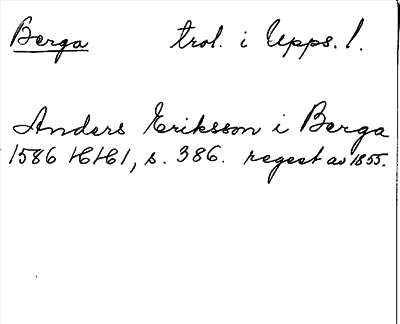 Berga trol. i Upps. l.
Anders Eriksson i Berga
1586 HH1, s. 386. regest av 1855.